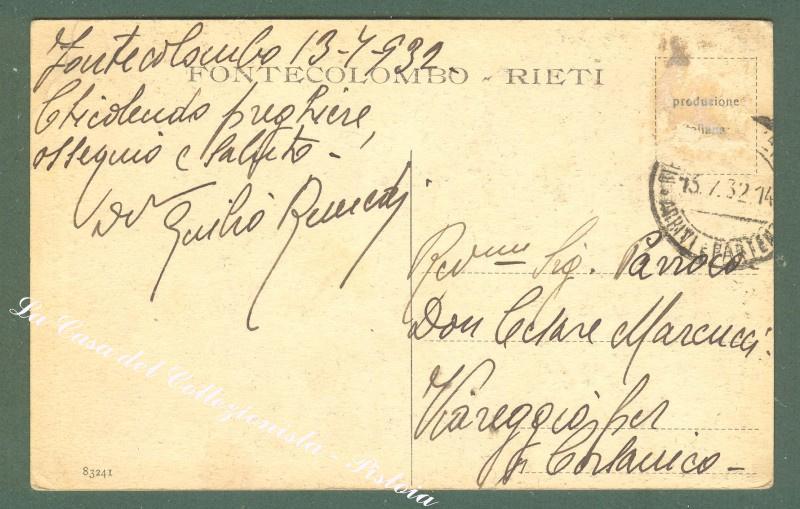 Fontecolombo 13-7-932.
FONTECOLOMBO - RIETI
Chiedendo preghiere,
ossequio e saluto -
Giulio
produzione
italiana
13.7.32.14
ARRIVI E PARTENZ
Rev.mo Sig. Parroco
Don Cesare Marcucci
Viareggio per
Corsanico -
83241
La Casa del Collezionista - Pistoia